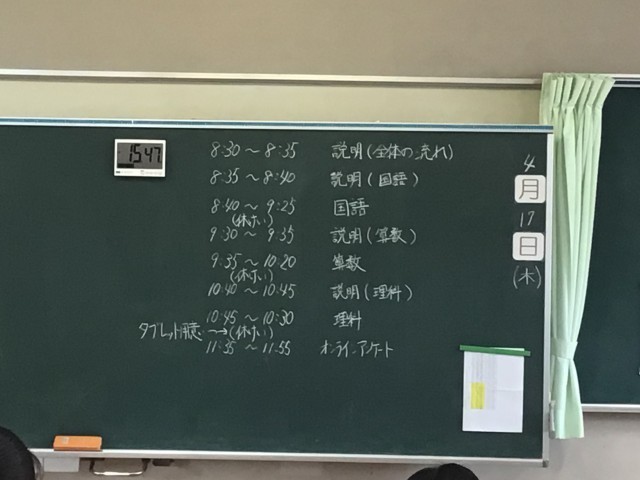 15:47
8:30 ～ 8:35 説明(全体の流れ)
8:35 ～ 8:40 説明(国語)
8:40 ～ 9:25 国語
(休けい)
9:30 ～ 9:35 説明(算数)
9:35 ～ 10:20 算数
(休けい)
10:40 ～ 10:45 説明(理科)
10:45 ～ 10:30 理科
タブレット用意 → (休けい)
11:35 ～ 11:55 オンラインアンケート
4
月
17
日
(木)